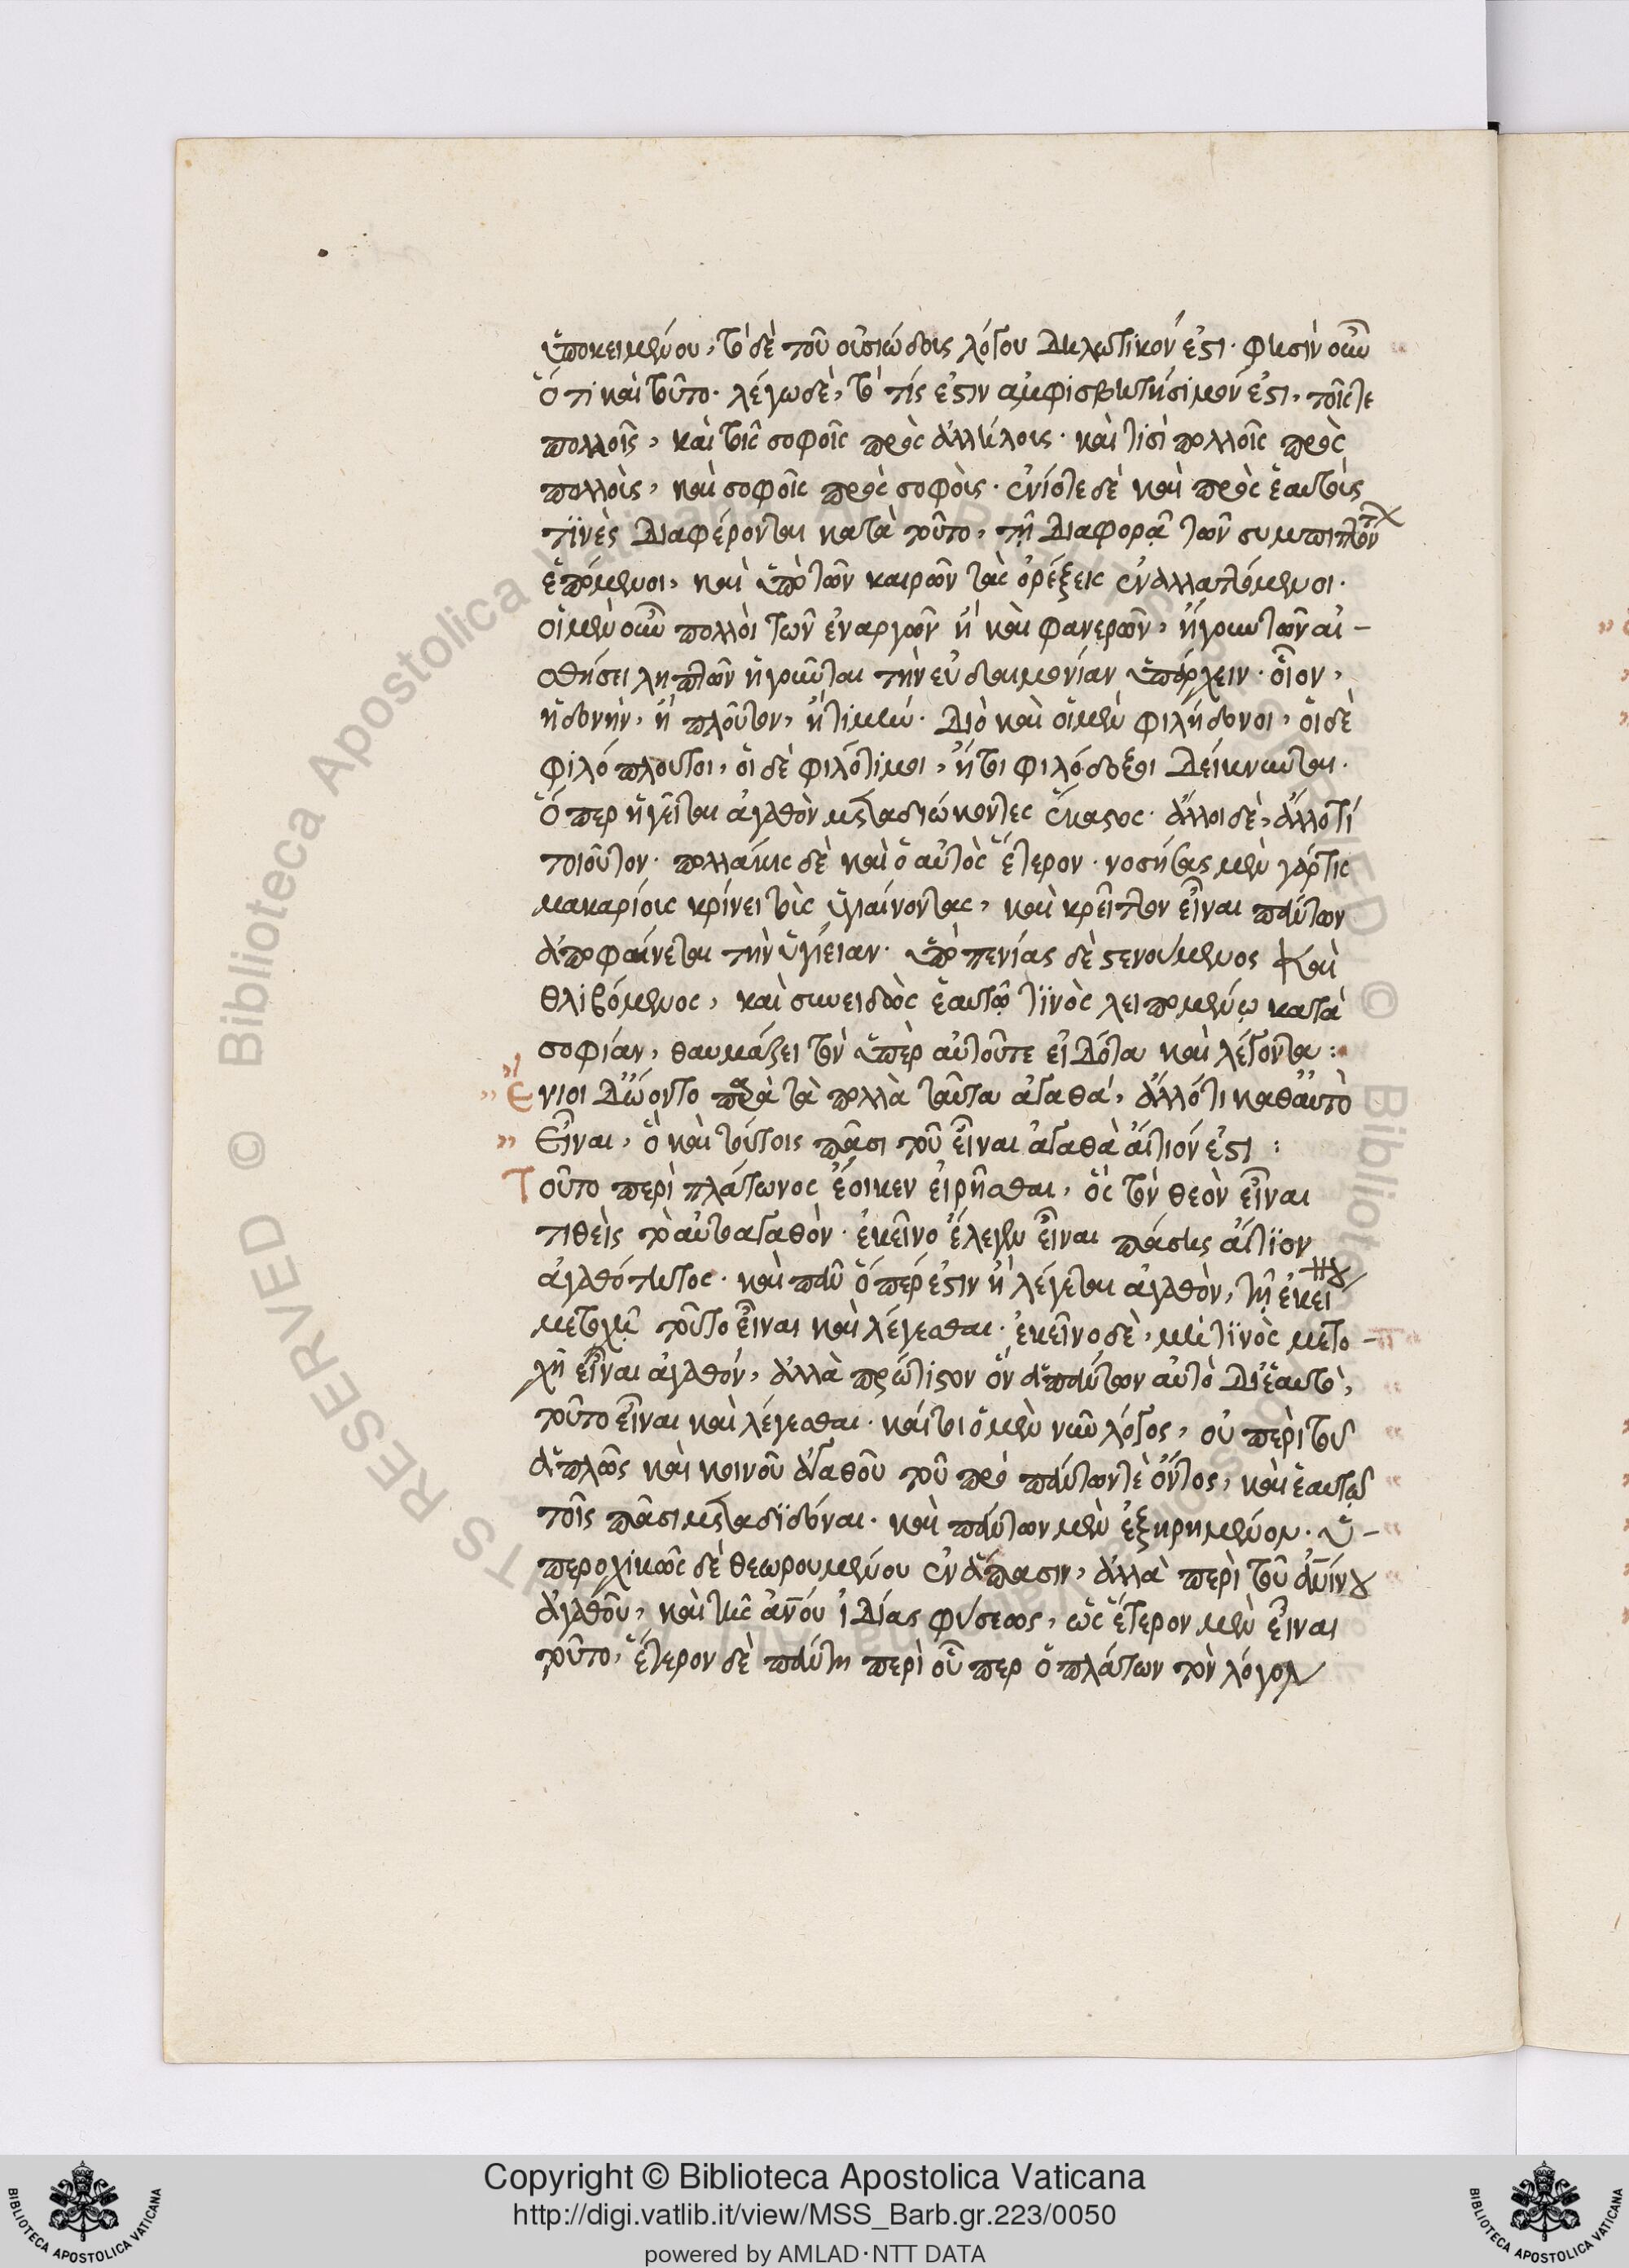 ὑποκειμένου, τὸ δὲ τοῦ οὐσιώδους λόγου δηλωτικόν ἐστι. φησὶν οὖν
ὅτι καὶ τοῦτο. λέγω δὲ, τὸ τίς ἐστιν ἀμφισβητήσιμόν ἐστι, τοῖς τε
πολλοῖς, καὶ τοῖς σοφοῖς πρὸς ἀλλήλους. καὶ τισὶ πολλοῖς πρὸς
πολλοὺς, καὶ σοφοῖς πρὸς σοφοὺς. ἐνίοτε δὲ καὶ πρὸς ἑαυτούς
τινὲς διαφέρονται κατὰ τοῦτο, τῇ διαφορᾷ τῶν συμπιπτόντων
ἑπόμενοι, καὶ ὑπὸ τῶν καιρῶν τὰς ὀρέξεις ἐναλλαττόμενοι.
οἱ μὲν οὖν πολλοὶ τῶν ἐναργῶν ἢ καὶ φανερῶν, ἤγουν τῶν αἰ-
σθήσει ληπτῶν ἡγοῦνται τὴν εὐδαιμονίαν ὑπάρχειν. οἷον,
ἡδονὴν, ἢ πλοῦτον, ἢ τιμήν. διὸ καὶ οἱ μὲν φιλήδονοι, οἱ δὲ
φιλόπλουτοι, οἱ δὲ φιλότιμοι, ἤτοι φιλόδοξοι δείκνυνται.
ὅπερ ἡγεῖται ἀγαθὸν μεταδιώκοντες ἕκαστος. ἄλλοι δὲ, ἄλλό τί
τοιοῦτον. πολλάκις δὲ καὶ ὁ αὐτὸς ἕτερον. νοσήσας μὲν γάρ τις
μακαρίους κρίνει τοὺς ὑγιαίνοντας, καὶ κρεῖττον εἶναι πάντων
ἀποφαίνεται τὴν ὑγίειαν. ὑπὸ πενίας δὲ στενούμενος καὶ
θλιβόμενος, καὶ συνειδὼς ἑαυτῷ τινὸς λειπομένῳ κατὰ
σοφίαν, θαυμάζει τὸν ὑπὲρ αὐτοῦ τε εἰδότα καὶ λέγοντα:
Ἔνιοι δ' ᾤοντο παρὰ τὰ πολλὰ ταῦτα ἀγαθά, ἄλλό τι καθ' αὑτὸ
εἶναι, ὃ καὶ τούτοις πᾶσι τοῦ εἶναι ἀγαθὰ αἴτιόν ἐστι:
Τοῦτο περὶ πλάτωνος ἔοικεν εἰρῆσθαι, ὃς τὸν θεὸν εἶναι
τιθεὶς τὸ αὐτοαγαθὸν. ἐκεῖνο ἔλεγεν εἶναι πάσης αἴτιον
ἀγαθότητος. καὶ πᾶν ὅπερ ἐστὶν ἢ λέγεται ἀγαθὸν, τῇ ἐκείνου
μετοχῇ τοῦτο εἶναι καὶ λέγεσθαι. ἐκεῖνο δὲ, μή τινὸς μετο-
χῇ εἶναι ἀγαθόν, ἀλλὰ πρώτιστον ὂν ἁπάντων αὐτὸ δι' ἑαυτὸ,
τοῦτο εἶναι καὶ λέγεσθαι. καίτοι ὁ μὲν νῦν λόγος, οὐ περὶ τοῦ
ἁπλῶς καὶ κοινοῦ ἀγαθοῦ τοῦ πρὸ πάντων τὲ ὄντος, καὶ ἑαυτοῦ
τοῖς πᾶσι μεταδιδόναι. καὶ πάντων μὲν ἐξῃρημένου. ὑ-
περοχικῶς δὲ θεωρουμένου ἐν ἅπασιν, ἀλλὰ περὶ τοῦ ἀνίνου
ἀγαθοῦ, καὶ τῆς ἀνού ἰδίας φύσεως, ὡς ἕτερον μὲν εἶναι
τοῦτο, ἕτερον δὲ πάντη περὶ οὗπερ ὁ πλάτων τὸν λόγον
Copyright © Biblioteca Apostolica Vaticana
http://digi.vatlib.it/view/MSS_Barb.gr.223/0050
powered by AMLAD·NTT DATA